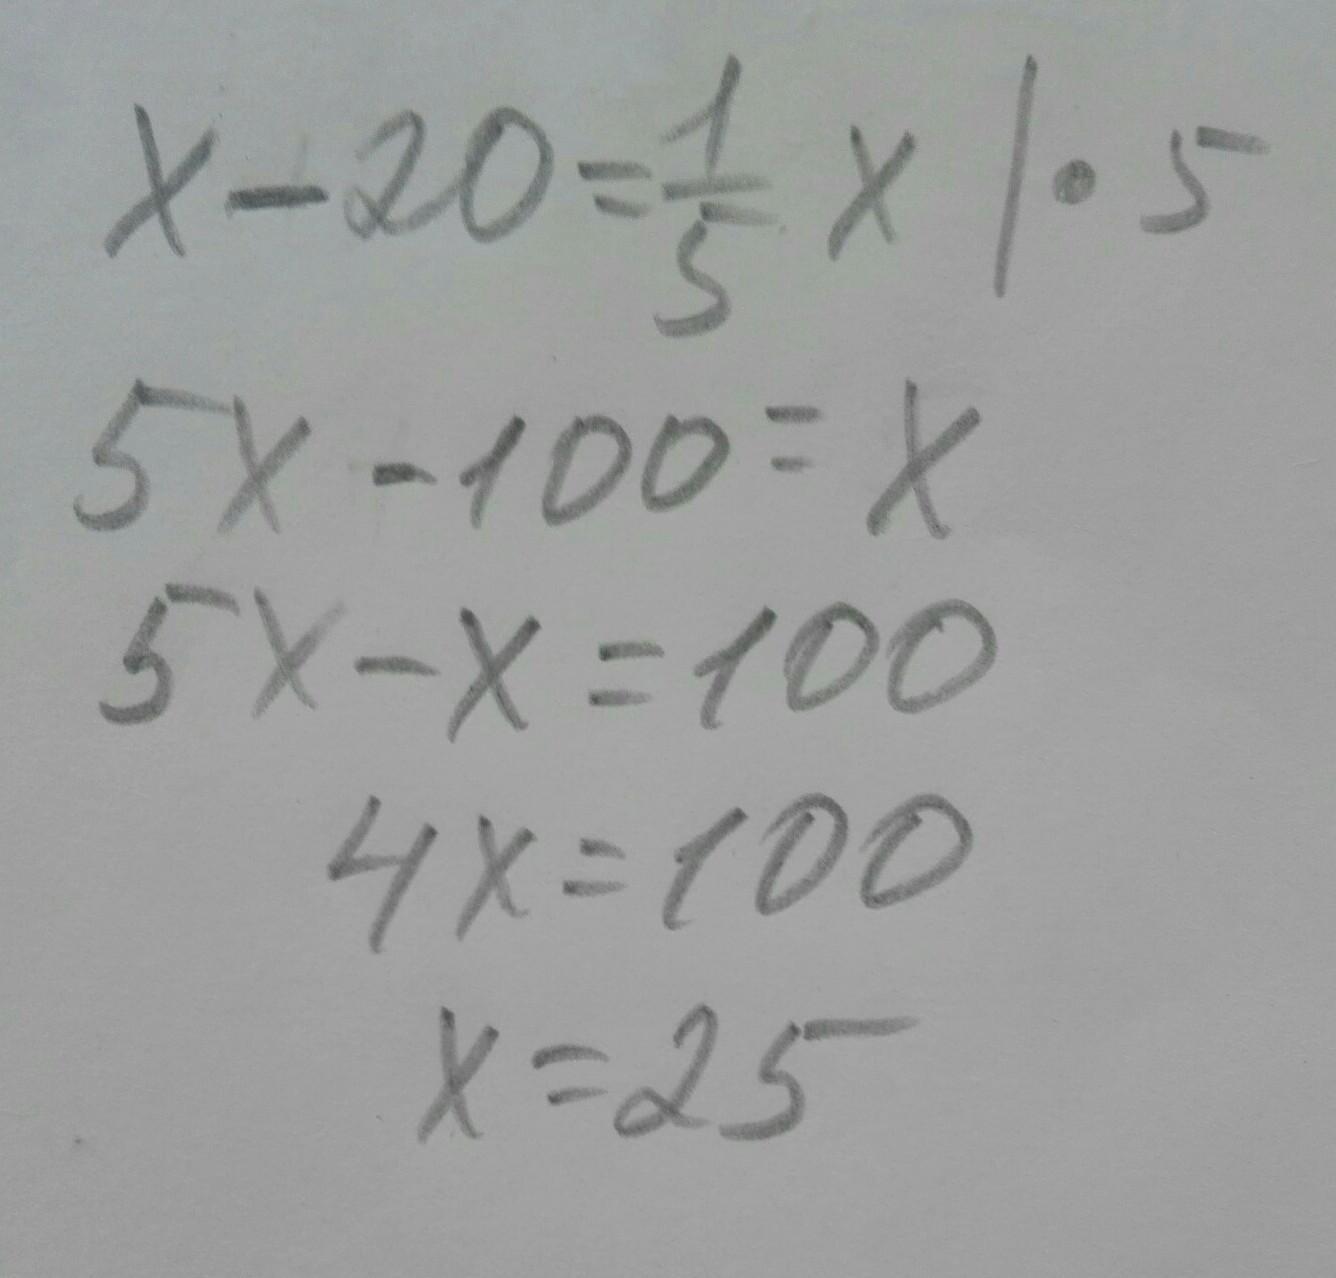 x - 20 = 1/5 x | • 5
5x - 100 = x
5x - x = 100
4x = 100
x = 25